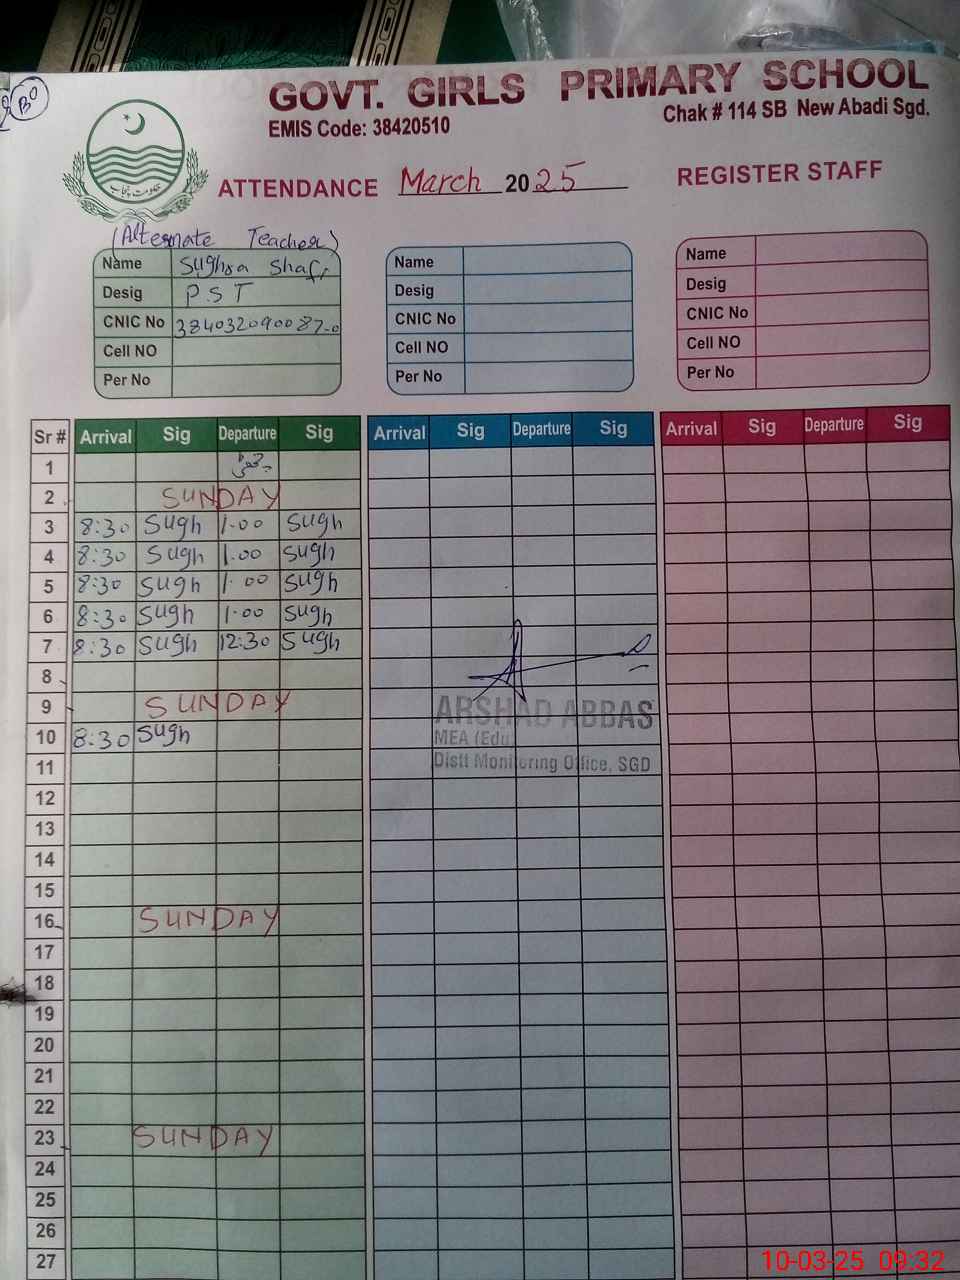 BO
GOVT. GIRLS PRIMARY SCHOOL
EMIS Code: 38420510
Chak # 114 SB New Abadi Sgd.
حکومت پنجاب
ATTENDANCE March 2025 REGISTER STAFF
(Alternate Teacher)
Name Sughra Shafi
Desig P.S T
CNIC No 384032090087-0
Cell NO
Per No
Name
Desig
CNIC No
Cell NO
Per No
Name
Desig
CNIC No
Cell NO
Per No
Sr # Arrival Sig Departure Sig Arrival Sig Departure Sig Arrival Sig Departure Sig
1
2 SUNDAY
3 8:30 Sugh 1.00 Sugh
4 8:30 Sugh 1.00 Sugh
5 8:30 Sugh 1.00 Sugh
6 8:30 Sugh 1.00 Sugh
7 8:30 Sugh 12:30 Sugh
8
9 SUNDAY
10 8:30 Sugh
ARSHAD ABBAS
MEA (Edu)
Distt Monitoring Office, SGD
11
12
13
14
15
16 SUNDAY
17
18
19
20
21
22
23 SUNDAY
24
25
26
27
10-03-25 09:32